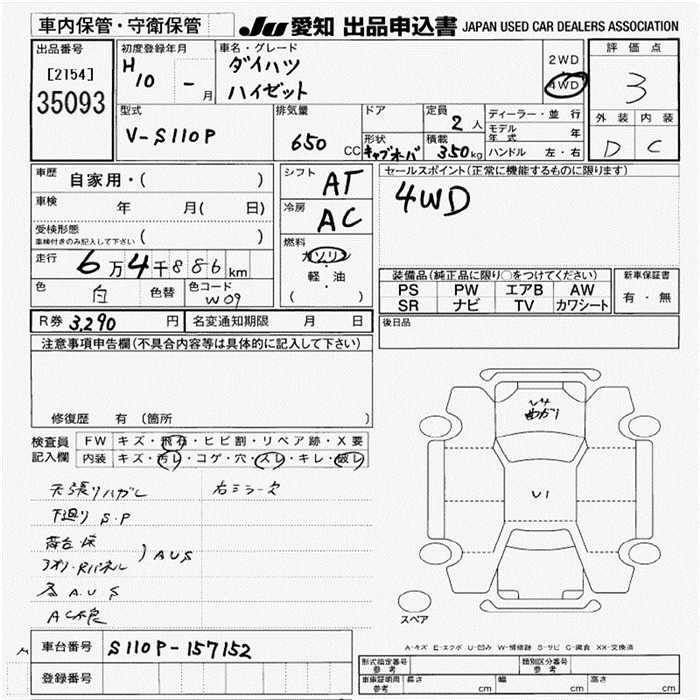 車内保管・守衛保管
JU 愛知 出品申込書 JAPAN USED CAR DEALERS ASSOCIATION
出品番号
[2154]
35093
初度登録年月
H10 - 月
車名・グレード
ダイハツ
ハイゼット
2WD
4WD
評価点
3
外装 内装
D C
型式
V-S110P
排気量
650 CC
ドア
形状
キャブオーバ
定員
2 人
積載
350kg
ディーラー・並行
モデル年式 年
ハンドル 左・右
車歴 自家用・( )
車検 年 月( 日)
受検形態
車検付きのみ記入して下さい ( )
走行 6万4千886km
色 白 色替 色コード W09
シフト AT
冷房 AC
燃料
ガソリン
軽・油
( )
セールスポイント(正常に機能するものに限ります)
4WD
装備品(純正品に限り○をつけてください)
PS PW エアB AW
SR ナビ TV カワシート
新車保証書
有・無
R券 3,290 円 名変通知期限 月 日
後日品
注意事項申告欄(不具合内容等は具体的に記入して下さい)
修復歴 有 (箇所 )
検査員記入欄
FW キズ・飛石・ヒビ割・リペア跡・X要
内装 キズ・汚レ・コゲ・穴・スレ・キレ・破レ
天張りハガレ 右ミラー欠
下廻り S・P
荷台 床
アオリ・Rパネル ) AUS
A.U.S
AC不良
曲がり
U1
スペア
A-キズ E-エクボ U-凹み W-補修跡 S-サビ C-腐食 XX-交換済
車台番号 S110P-157152
登録番号
形式指定番号 参考
類別区分番号 参考
車庫証明用 参考 長さ cm 幅 cm 高さ cm